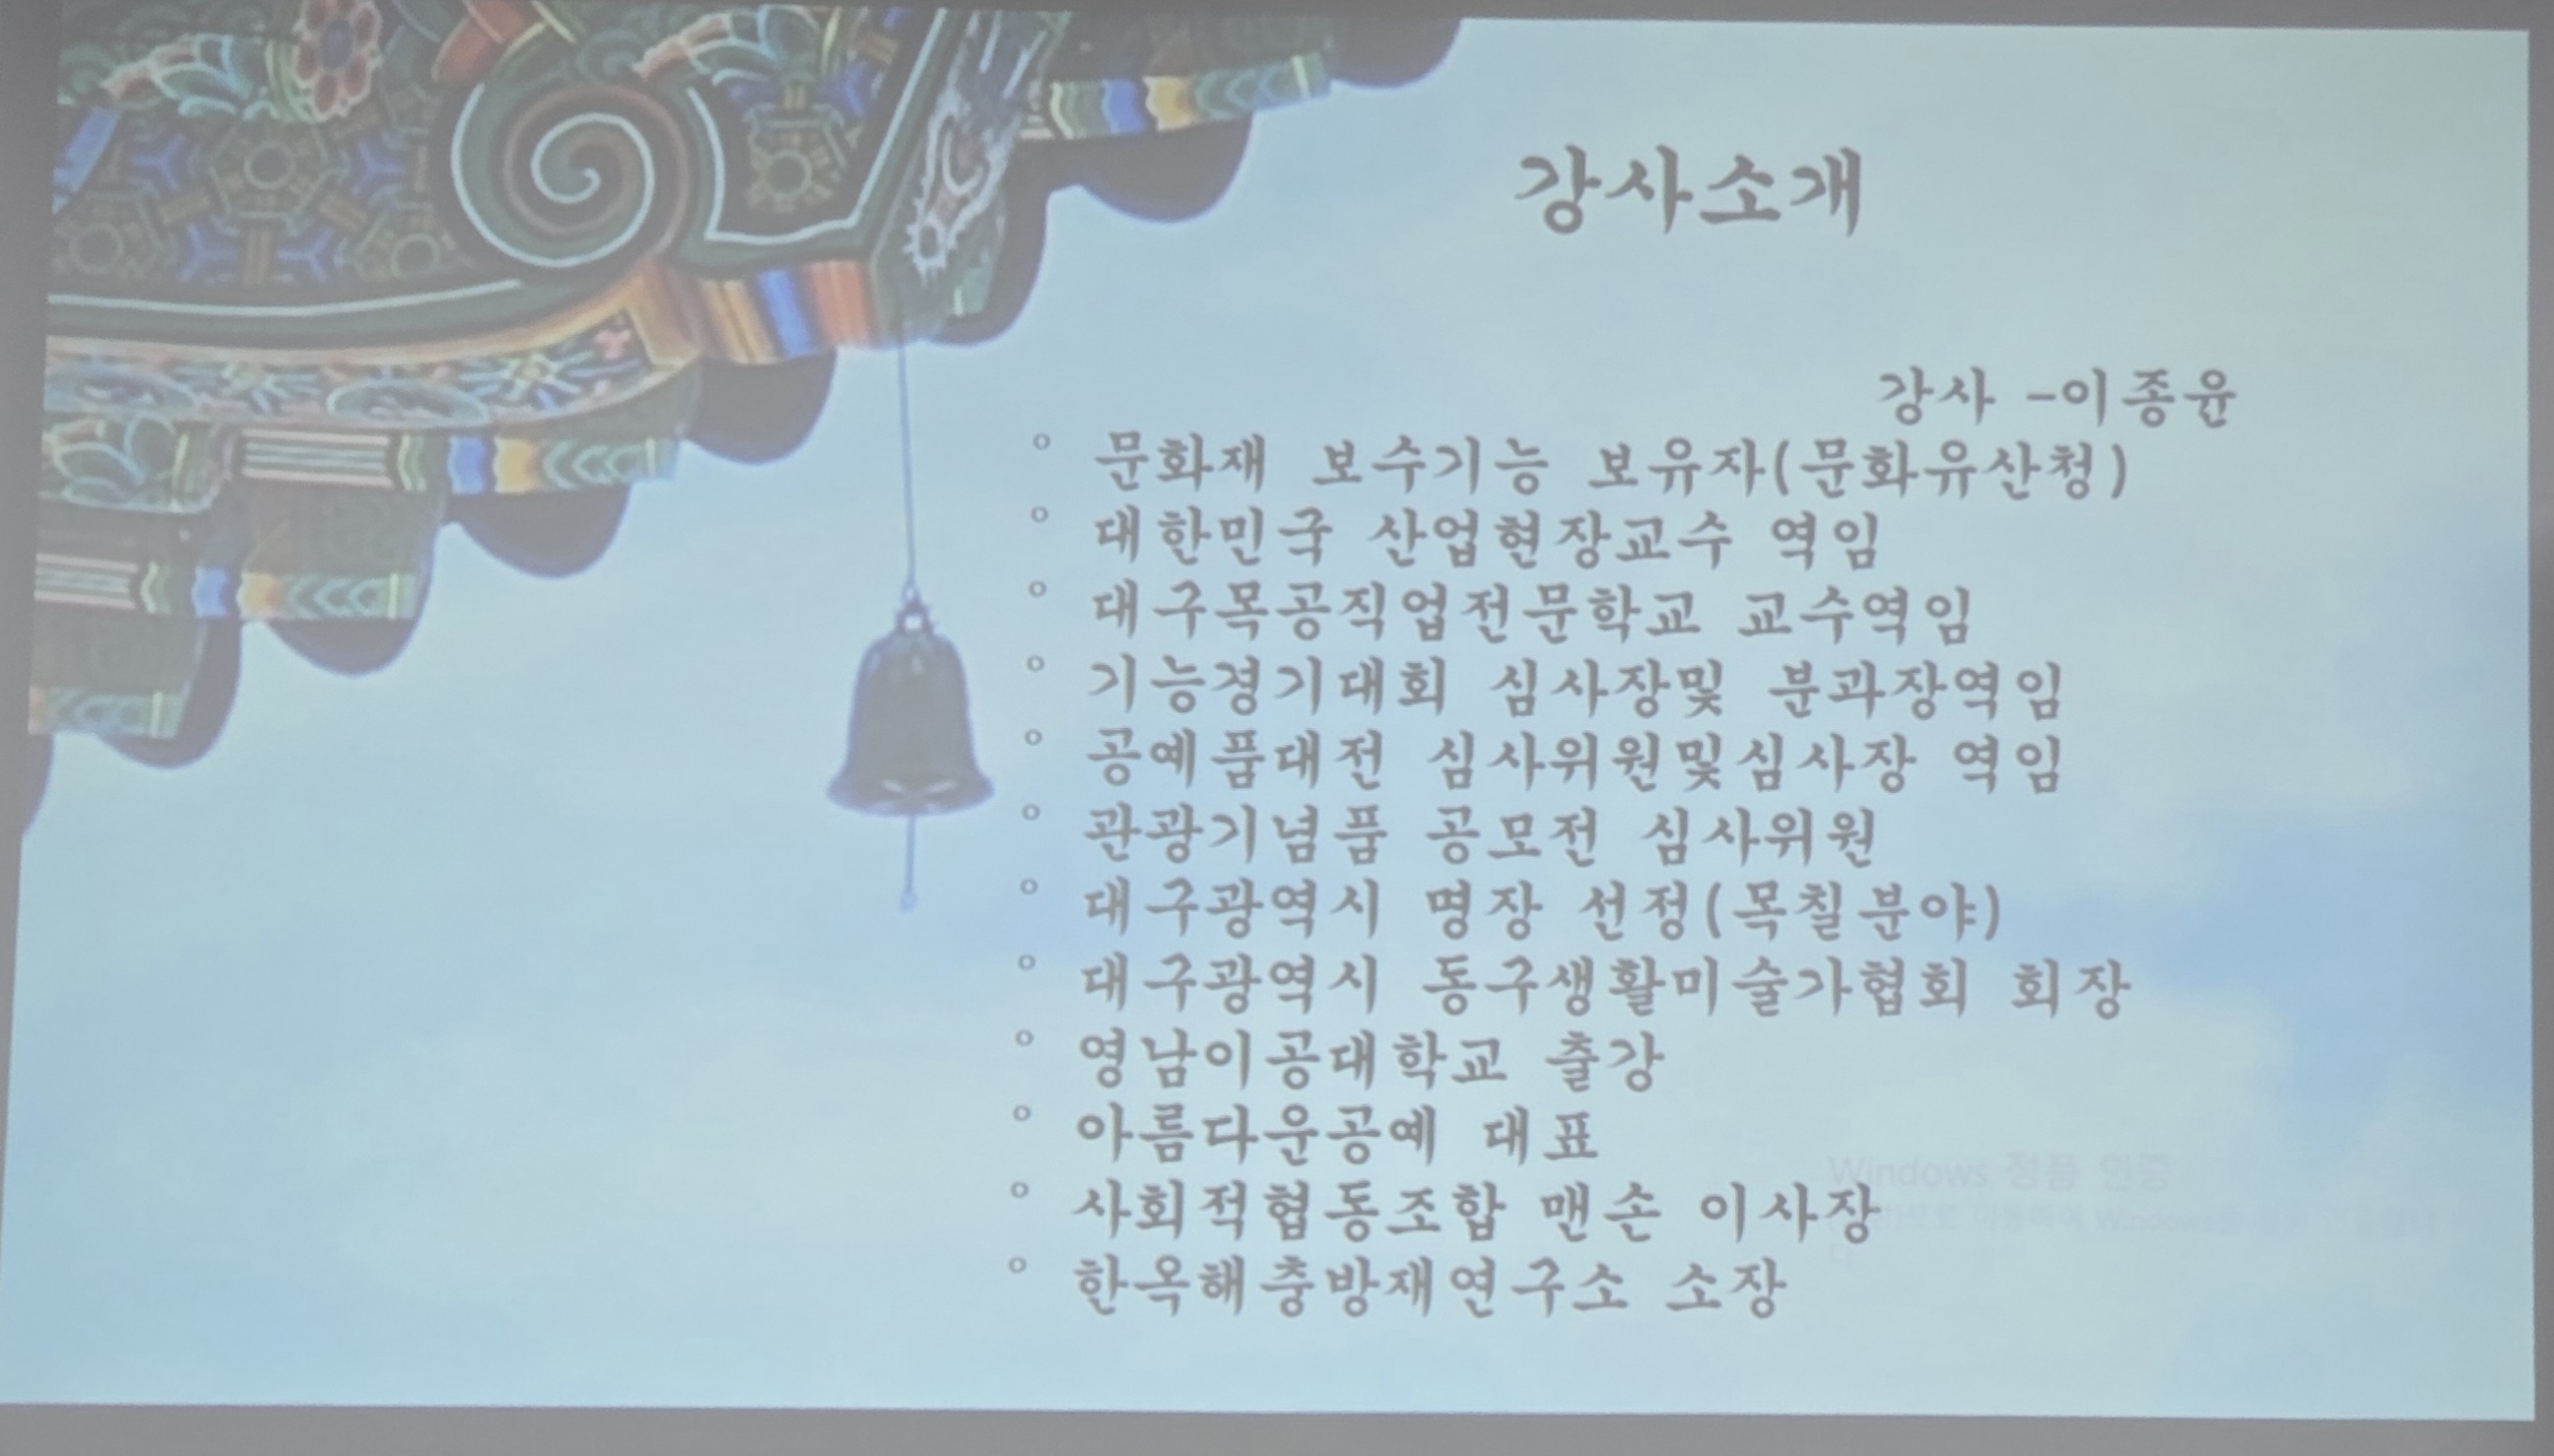 강사소개
강사 -이종윤
° 문화재 보수기능 보유자(문화유산청)
° 대한민국 산업현장교수 역임
° 대구목공직업전문학교 교수역임
° 기능경기대회 심사장및 분과장역임
° 공예품대전 심사위원및심사장 역임
° 관광기념품 공모전 심사위원
° 대구광역시 명장 선정(목칠분야)
° 대구광역시 동구생활미술가협회 회장
° 영남이공대학교 출강
° 아름다운공예 대표
° 사회적협동조합 맨손 이사장
° 한옥해충방재연구소 소장
Windows 정품 인증